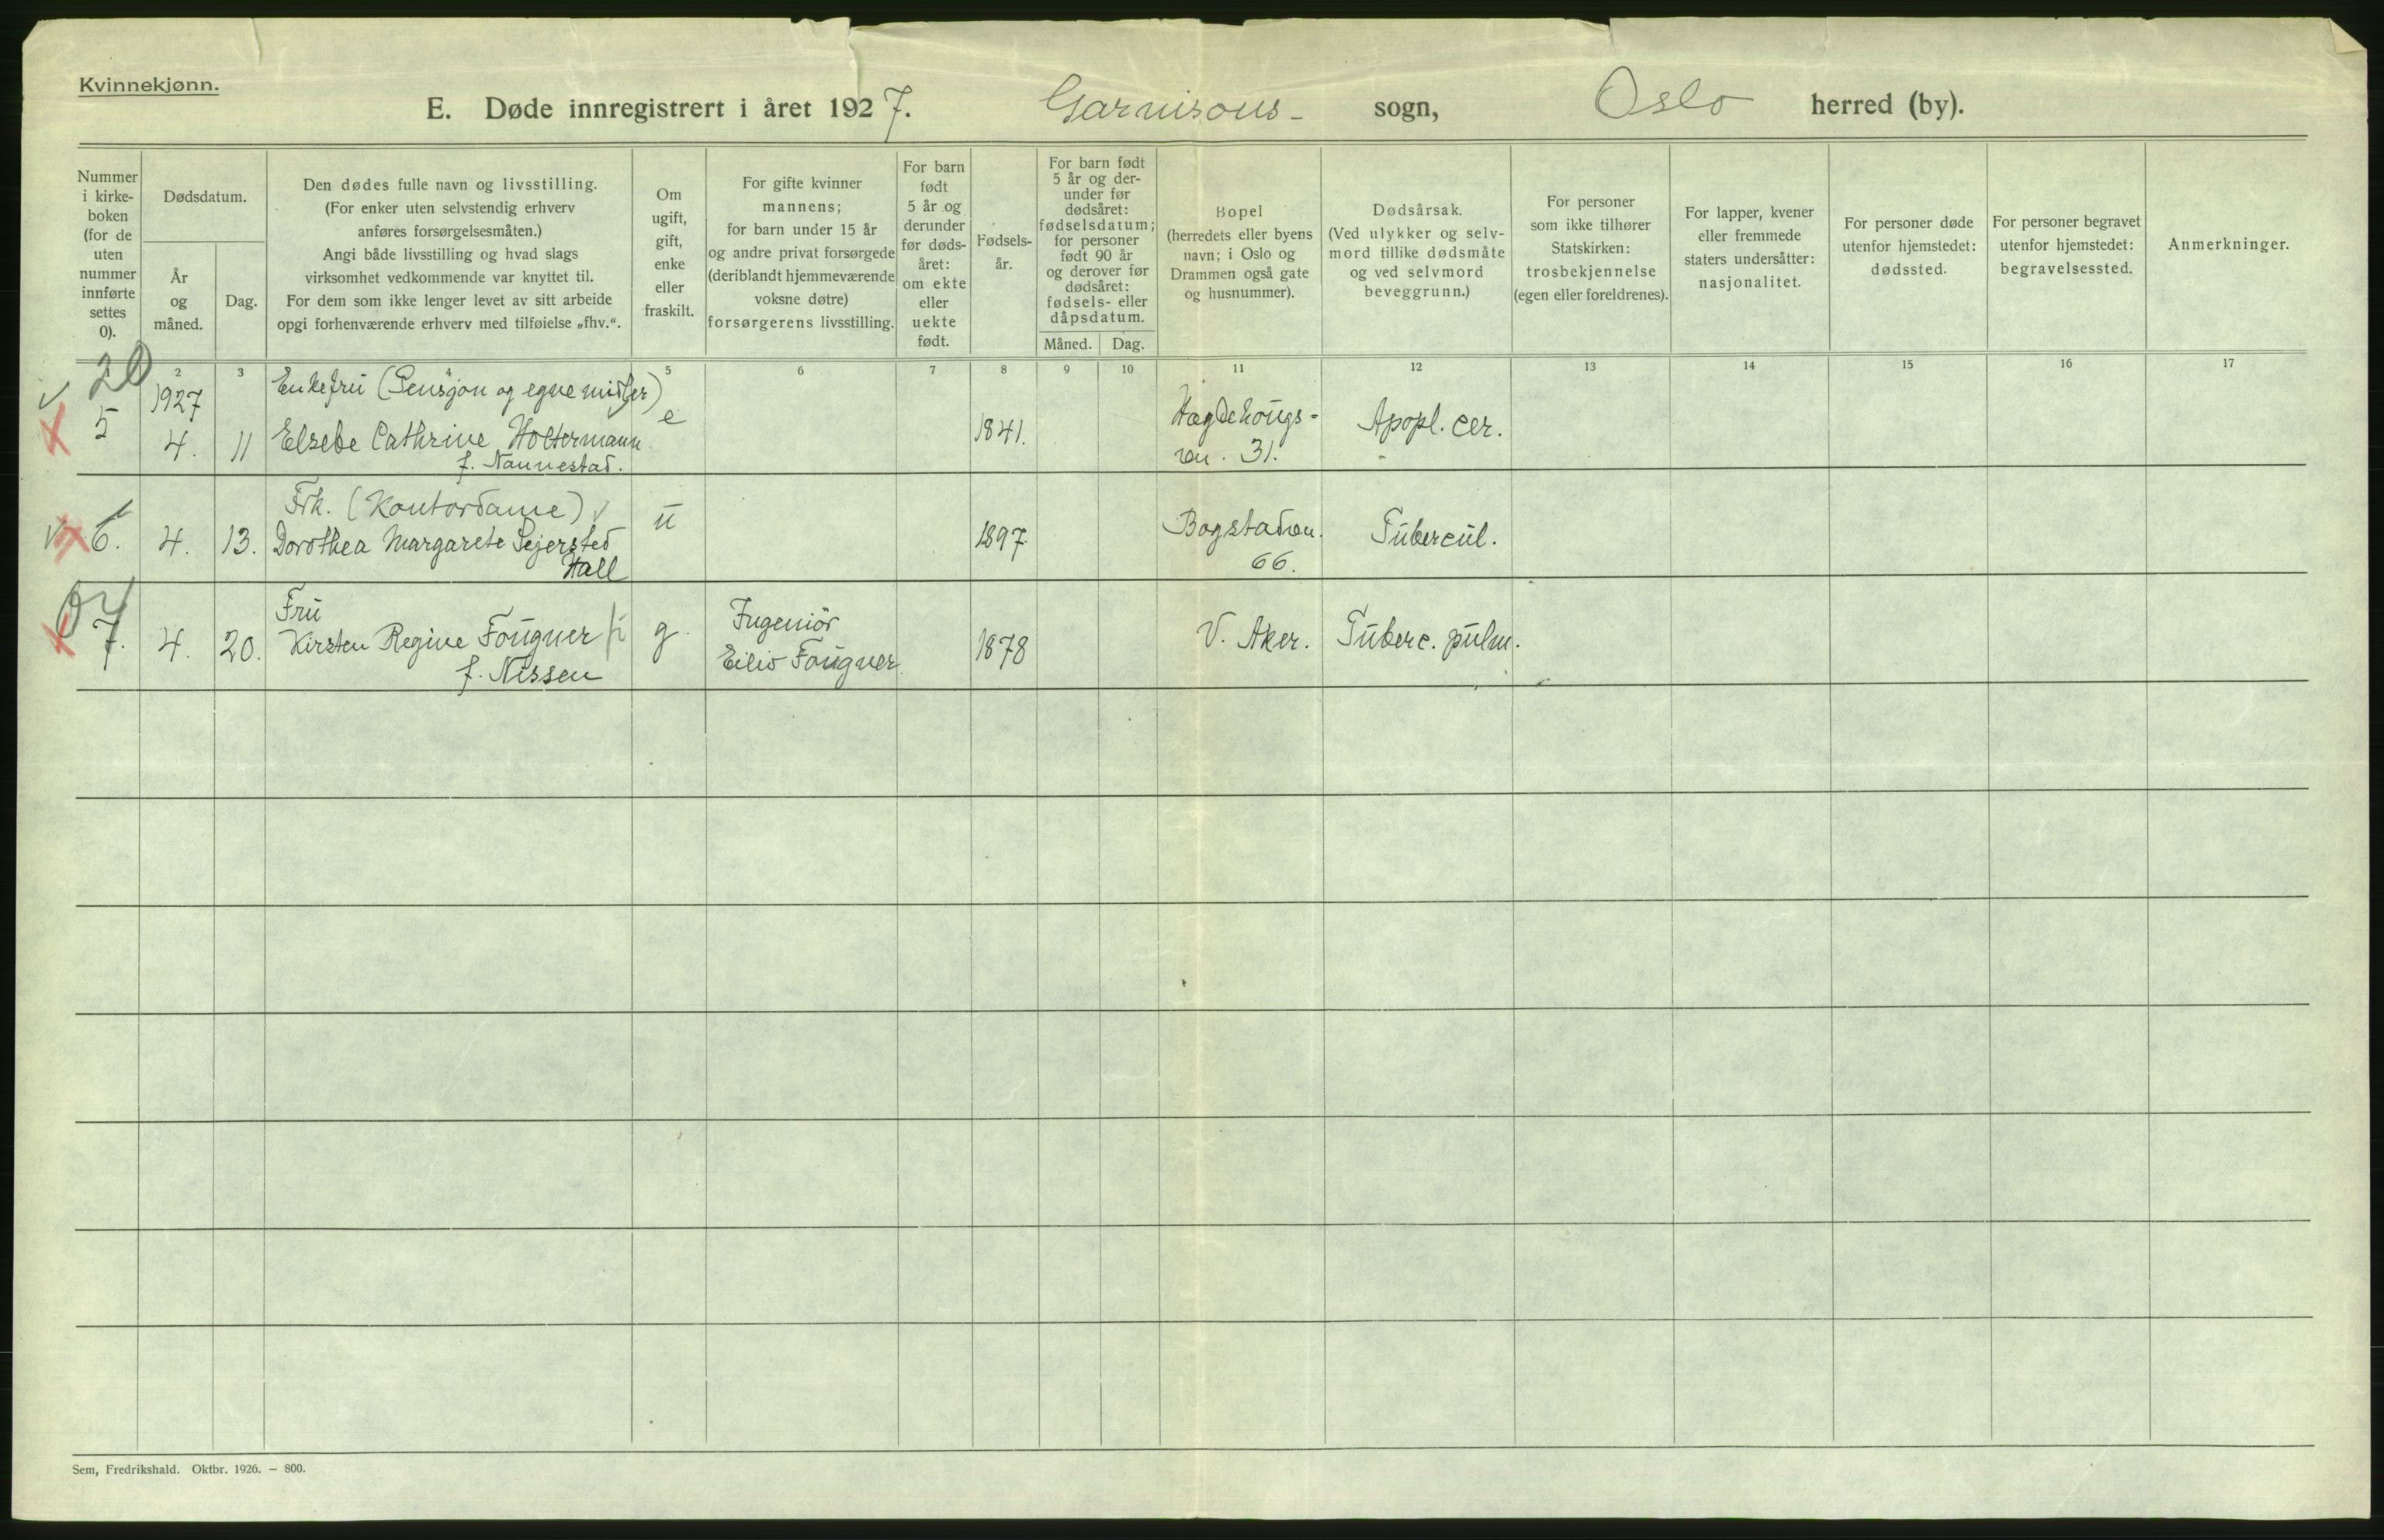 Kvinnekjønn.
E. Døde innregistrert i året 1927. Garnisons- sogn, Oslo herred (by).
Nummer
i kirke-
boken
(for de
uten
nummer
innførte
settes
0).
Dødsdatum.
År
og
måned.
Dag.
Den dødes fulle navn og livsstilling.
(For enker uten selvstendig erhverv
anføres forsørgelsesmåten.)
Angi både livsstilling og hvad slags
virksomhet vedkommende var knyttet til.
For dem som ikke lenger levet av sitt arbeide
opgi forhenværende erhverv med tilføielse „fhv.“.
Om
ugift,
gift,
enke
eller
fraskilt.
For gifte kvinner
mannens;
for barn under 15 år
og andre privat forsørgede
(deriblandt hjemmeværende
voksne døtre)
forsørgerens livsstilling.
For barn
født
5 år og
derunder
før døds-
året:
om ekte
eller
uekte
født.
Fødsels-
år.
For barn født
5 år og der-
under før
dødsåret:
fødselsdatum;
for personer
født 90 år
og derover før
dødsåret:
fødsels- eller
dåpsdatum.
Måned. Dag.
Bopel
(herredets eller byens
navn; i Oslo og
Drammen også gate
og husnummer).
Dødsårsak.
(Ved ulykker og selv-
mord tillike dødsmåte
og ved selvmord
beveggrunn.)
For personer
som ikke tilhører
Statskirken:
trosbekjennelse
(egen eller foreldrenes).
For lapper, kvener
eller fremmede
staters undersåtter:
nasjonalitet.
For personer døde
utenfor hjemstedet:
dødssted.
For personer begravet
utenfor hjemstedet:
begravelsessted.
Anmerkninger.
2 3 4 5 6 7 8 9 10 11 12 13 14 15 16 17
20
1927
Enkefru (Pensjon og egne midler)
5 4. 11 Elzebe Cathrine Holtermann e 1841. Hægdehougs- Apopl. cer.
f. Nannestad. vn. 31.
Frk. (Kontordame) u Bogstadvn. Tubercul.
6. 4. 13. Dorothea Margarete Sejersted 1897 66.
Hall
Fru Ingeniör
7. 4. 20. Kirsten Regine Fougner g. Eiliv Fougner 1878 V. Aker. Tuberc. pulm.
f. Nissen
Sem, Fredrikshald. Oktbr. 1926. — 800.